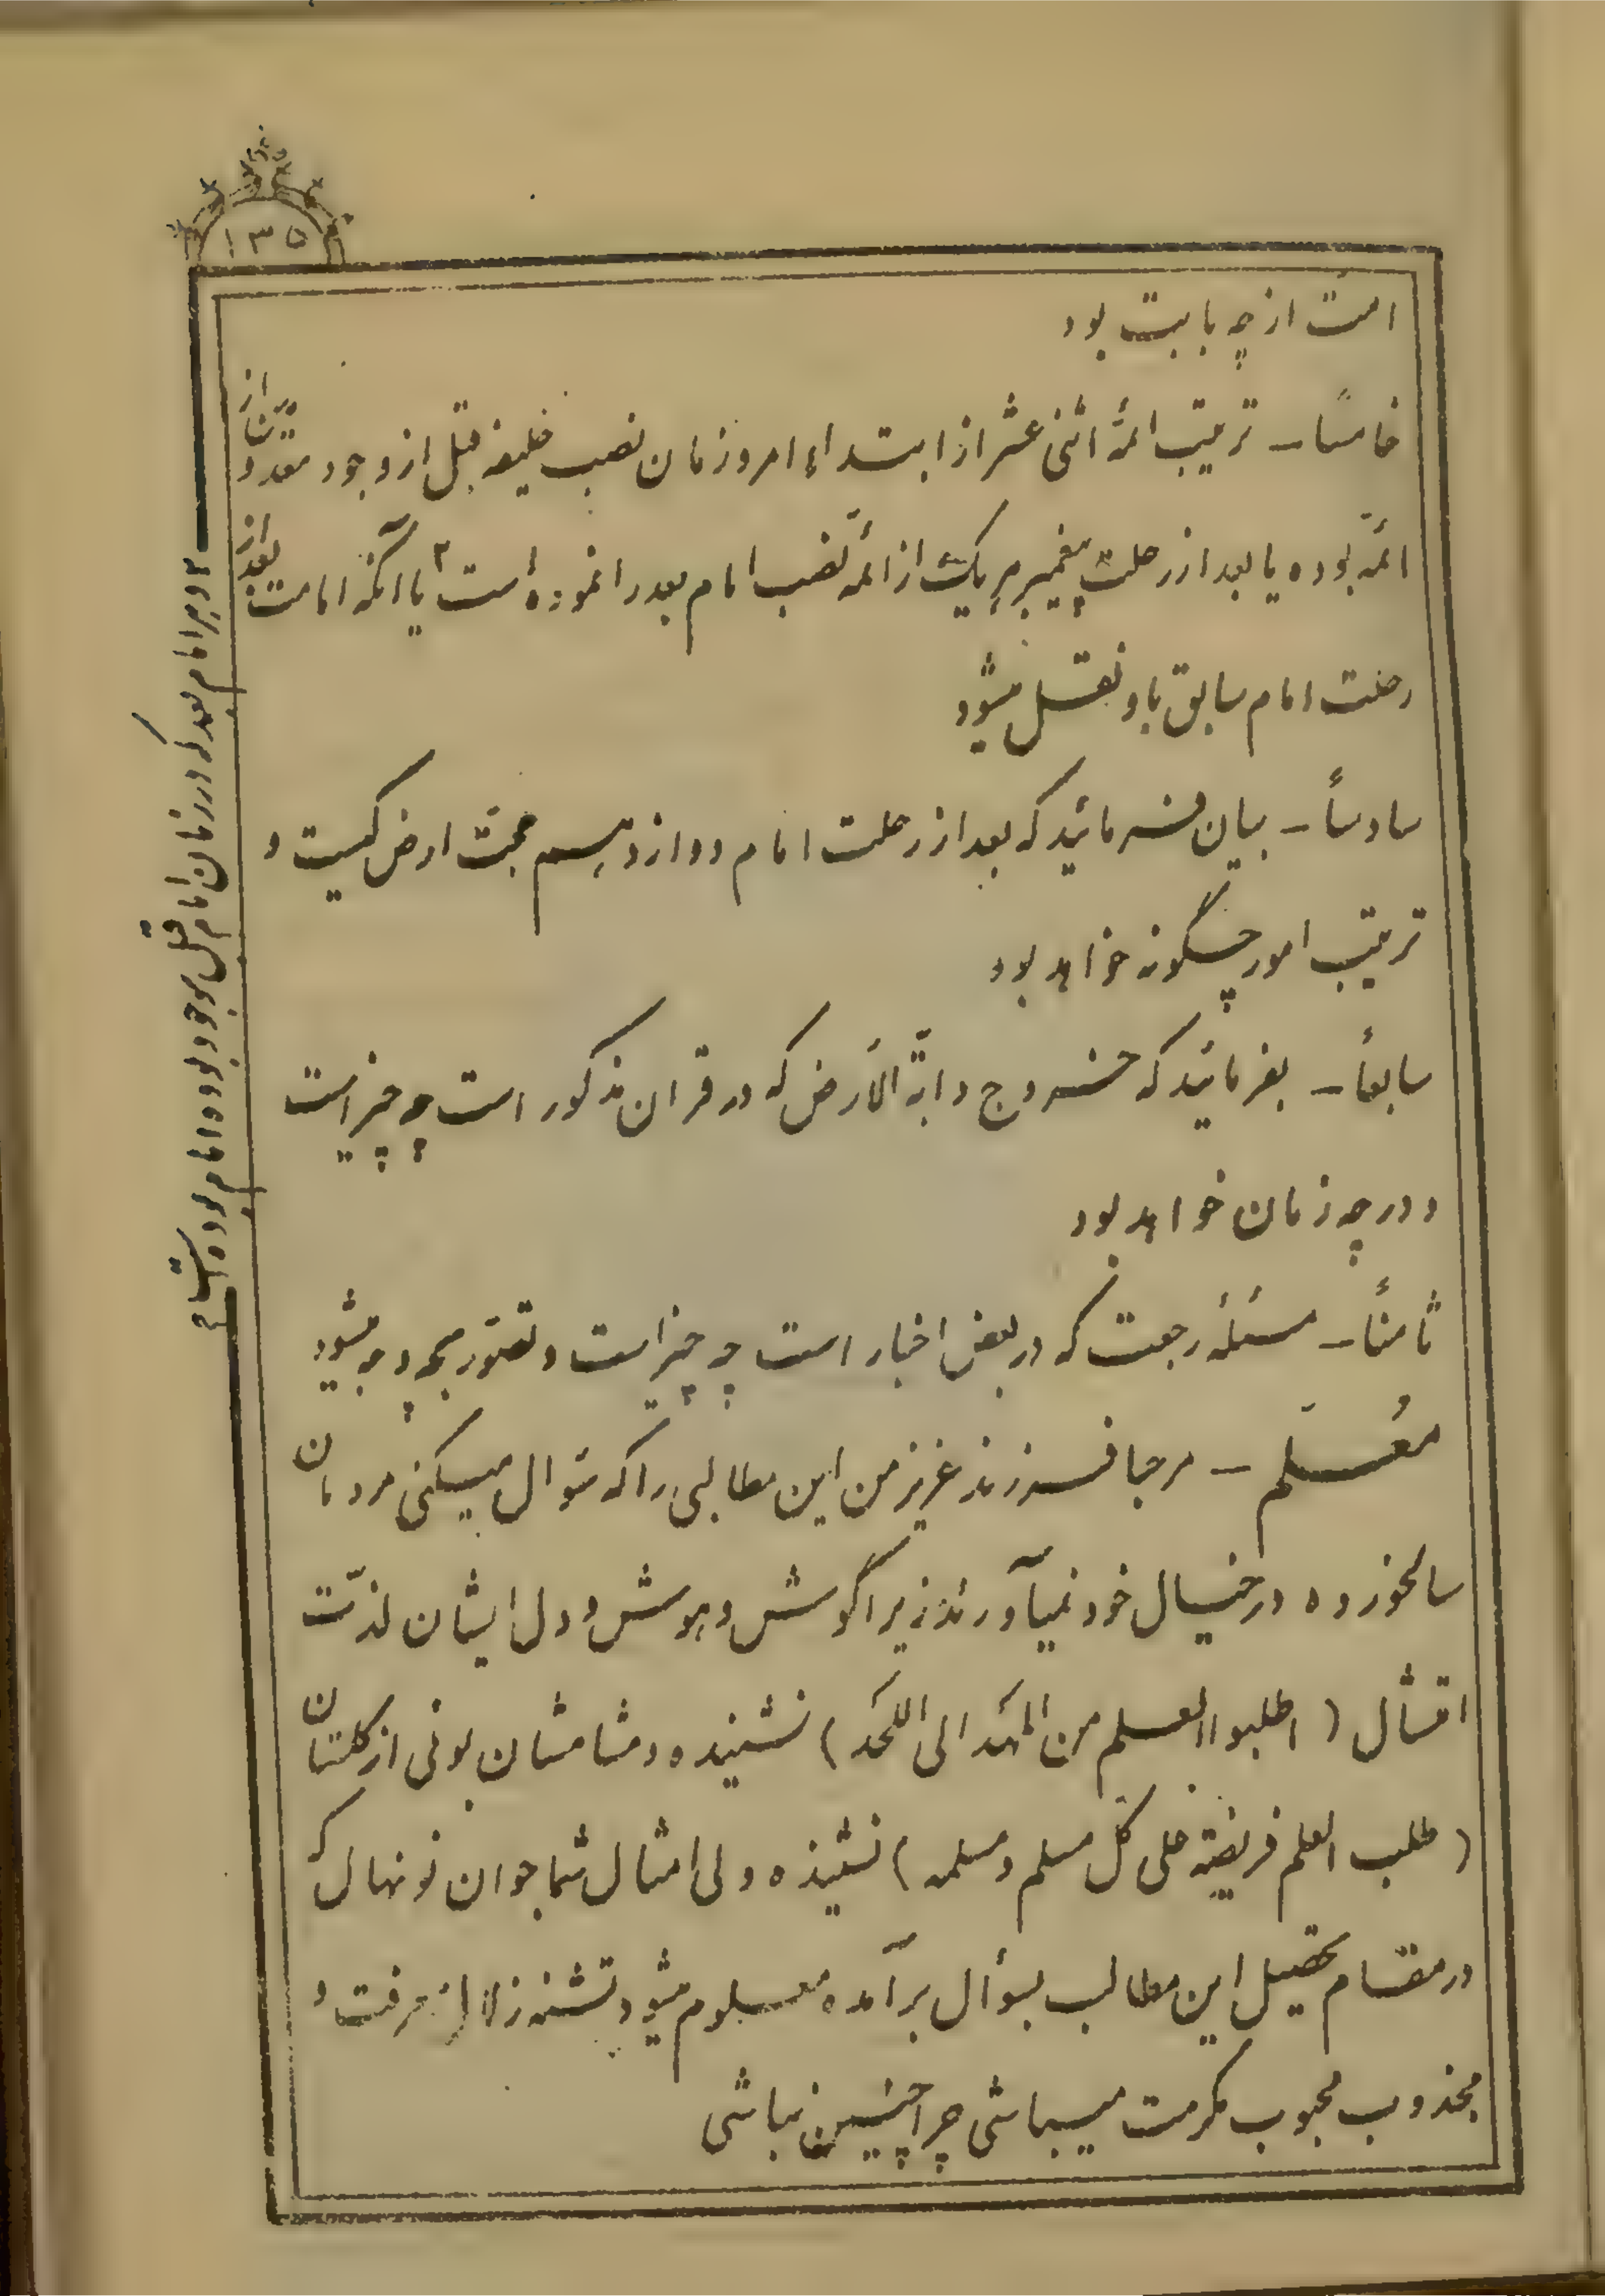 ۱۳۵
امت از چه بابت بود
خامساً - ترتیب ائمهٔ اثنی عشر از ابتداء امر و زمان نصب خلیفه قبل از وجود از
ائمّه بوده یا بعد از رحلت پیغمبر هر یک از ائمّه نصب امام بعد را نموده است ۲ یا آنکه امامت بعد از
رحلت امام سابق باو نقل میشود
سادساً - بیان فرمائید که بعد از رحلت امام دوازدهم حجت ارض کیست و
ترتیب امور چگونه خواهد بود
سابعاً - بفرمائید که خروج دابّة الأرض که در قران مذکور است چه چیز است
و در چه زمان خواهد بود
ثامناً - مسئلهٔ رجعت که در بعض اخبار است چه چیز است و تصوّر بچه وجه میشود
معُلّم - مرحبا فرزند عزیز من این مطالبی را که سئوال میکنی مردمان
سالخورده در خیال خود نمیآورند زیرا گوش و هوش و دل ایشان لذّت
امتثال (اطلبوا العلم من المَهد الی اللحَد) نشنیده و مشامشان بوئی از گلستان
(طلب العلم فریضة علی کلّ مسلم و مسلمه) نشنیده ولی امثال شما جوان نونهال که
در مقام تحصیل این مطالب بسؤال برآمده معلوم میشود تشنه زلال معرفت و
مجذوب محبوب مکرمت میباشی چرا چنین نباشی
۲ و هر امام بعد که در زمان امام قبل موجود بوده امام بوده است